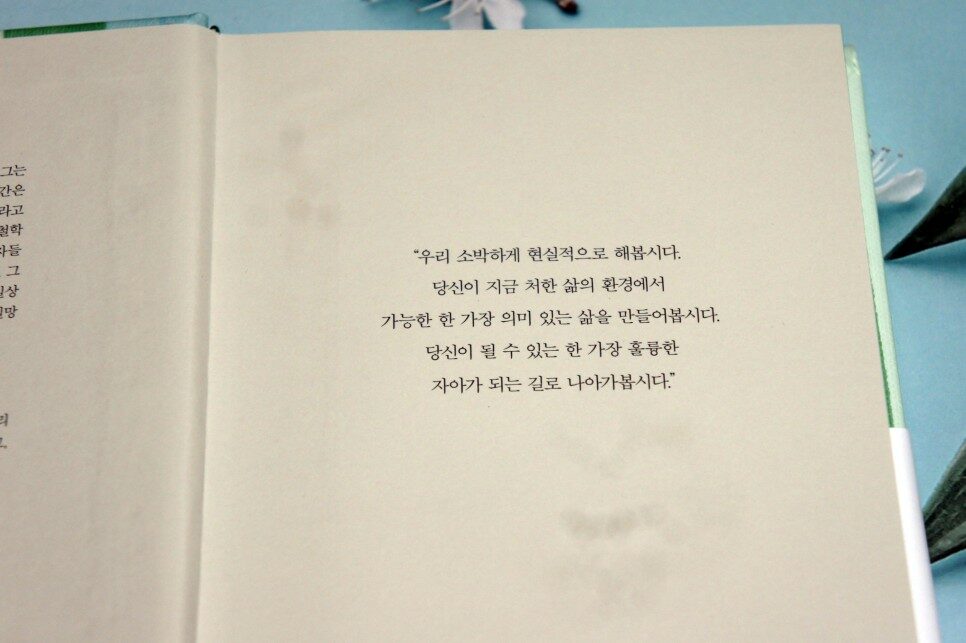 그는
간은
라고
철학
자들
그
일상
"우리 소박하게 현실적으로 해봅시다.
당신이 지금 처한 삶의 환경에서
가능한 한 가장 의미 있는 삶을 만들어봅시다.
당신이 될 수 있는 한 가장 훌륭한
자아가 되는 길로 나아가봅시다."